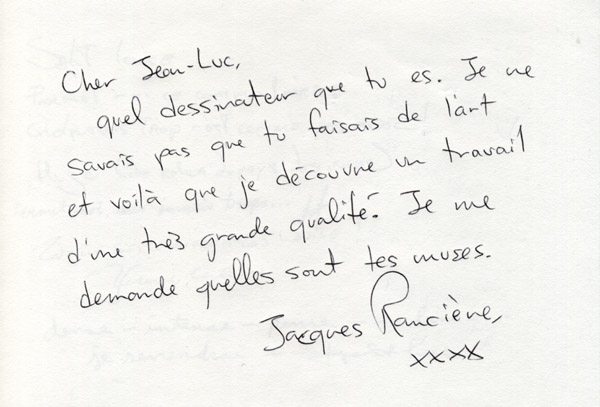 Cher Jean-Luc,
quel dessinateur que tu es. Je ne
savais pas que tu faisais de l'art
et voilà que je découvre un travail
d'une très grande qualité. Je me
demande quelles sont tes muses.
Jacques Rancière,
xxxx